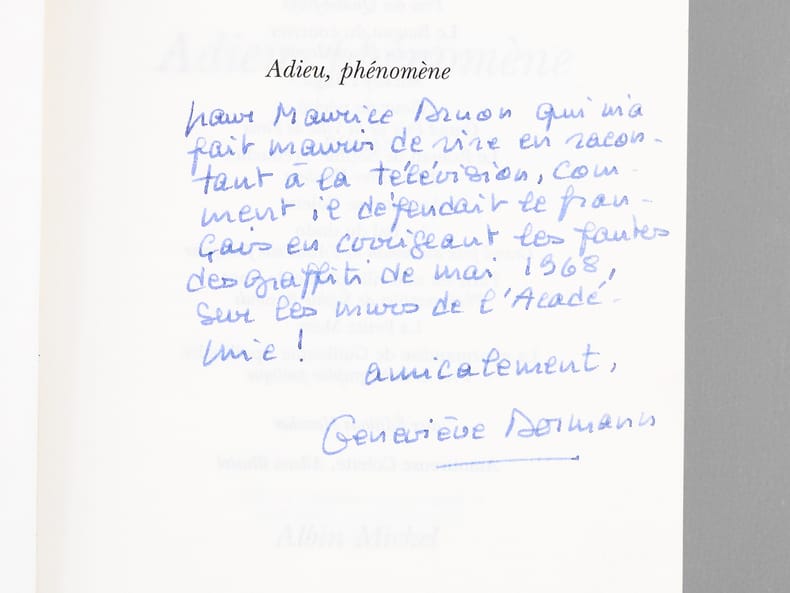 Adieu, phénomène
pour Maurice Druon qui m'a
fait mourir de rire en racon-
tant à la télévision, com-
ment il défendait le fran-
çais en corrigeant les fautes
des graffiti de mai 1968,
sur les murs de l'Acadé-
mie !
amicalement,
Geneviève Dormann
Albin Michel